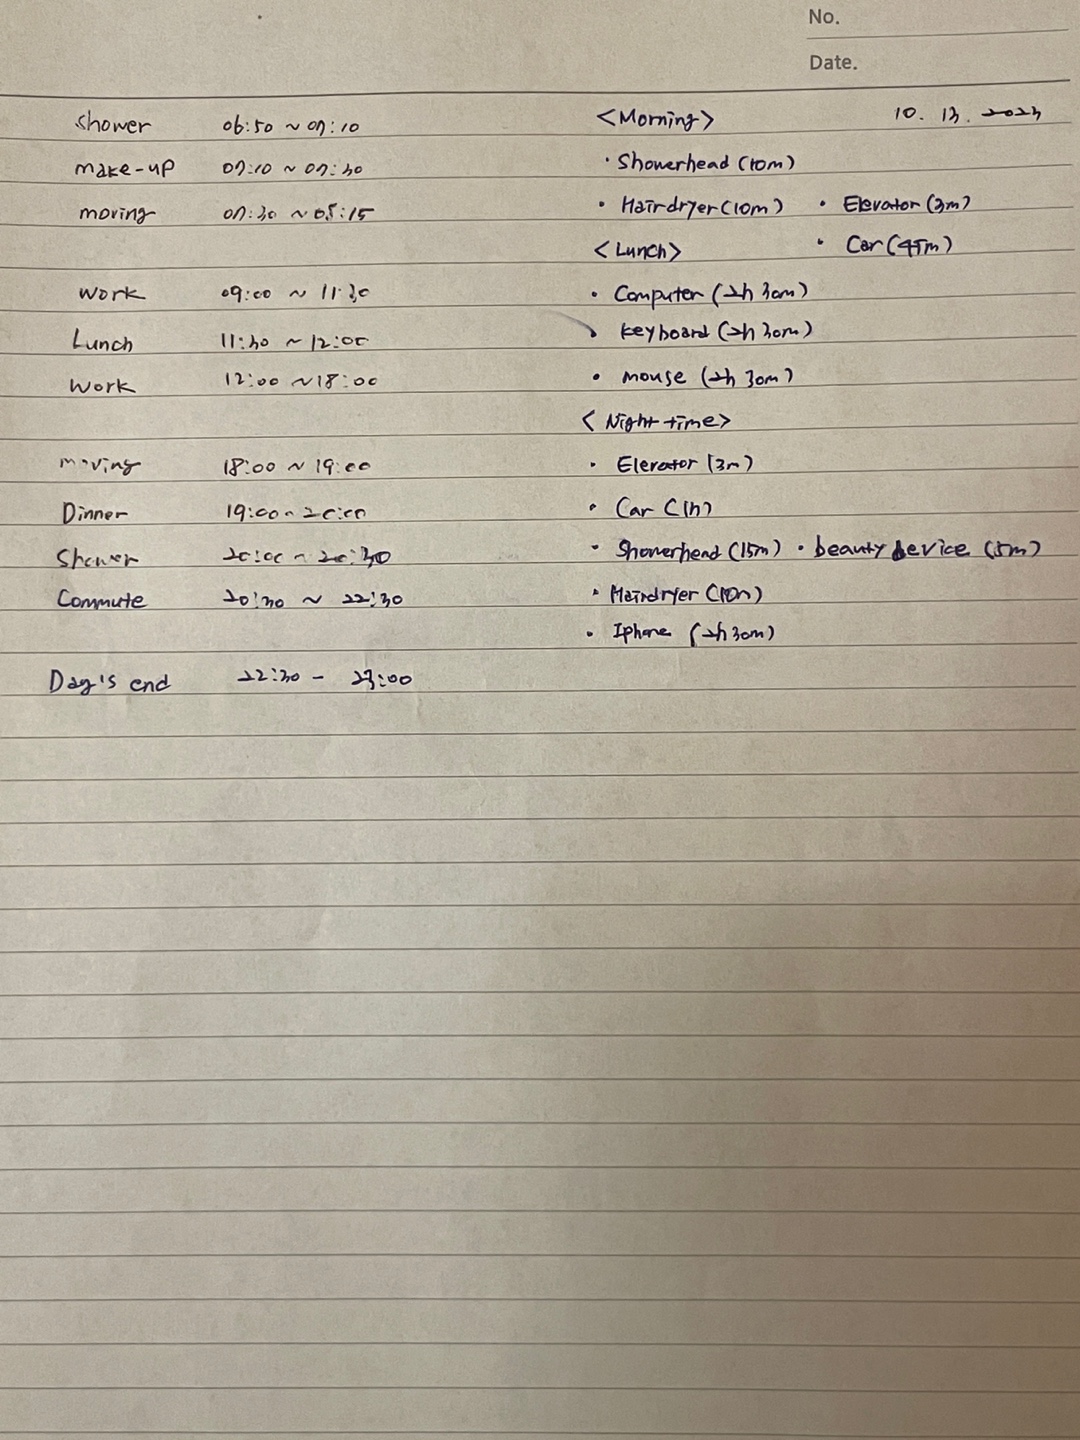 No.
Date.
shower 06:50 ~ 07:10
make-up 07:10 ~ 07:30
moving 07:30 ~ 08:15
work 09:00 ~ 11:30
Lunch 11:30 ~ 12:00
work 12:00 ~ 18:00
moving 18:00 ~ 19:00
Dinner 19:00 ~ 20:00
Shower 20:00 ~ 20:30
Commute 20:30 ~ 22:30
Day's end 22:30 - 23:00
<Morning> 10. 13. 2023
· Showerhead (10m)
· Hairdryer (10m) · Elevator (3m)
<Lunch> · Car (45m)
· Computer (2h 30m)
· keyboard (2h 30m)
· mouse (2h 30m)
< Night time>
· Elevator (3m)
· Car (1h)
· Showerhead (15m) · beauty device (5m)
· Hairdryer (10m)
· Iphone (2h 30m)